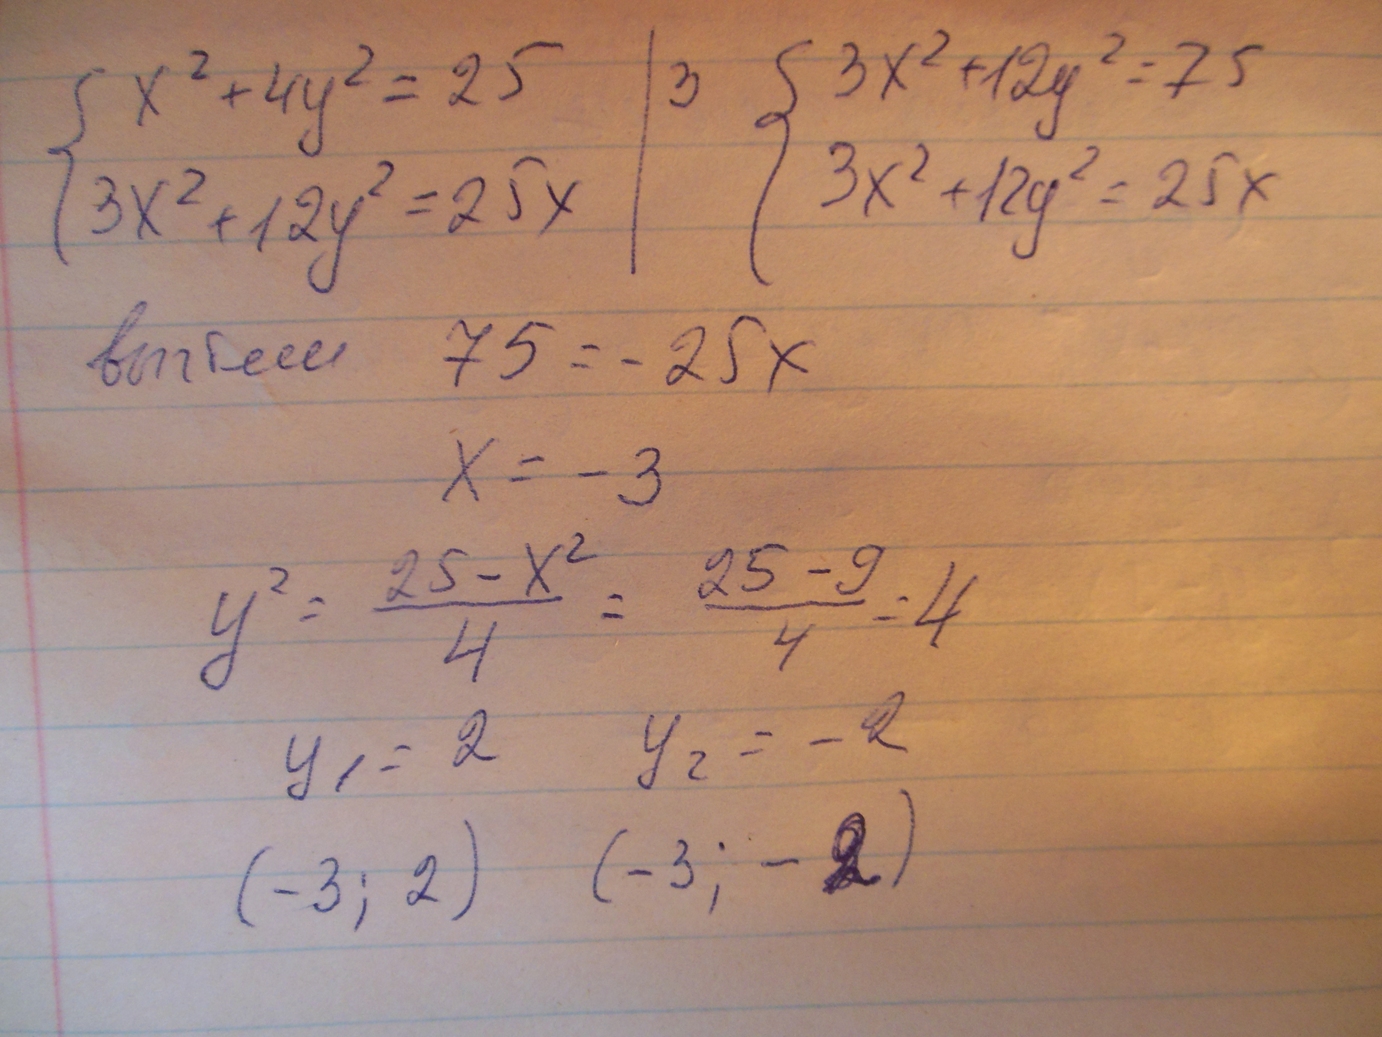 { x² + 4y² = 25 | 3 { 3x² + 12y² = 75
{ 3x² + 12y² = 25x | { 3x² + 12y² = 25x
вычтем 75 = -25x
x = -3
y² = (25 - x²)/4 = (25 - 9)/4 = 4
y₁ = 2 y₂ = -2
(-3; 2) (-3; -2)